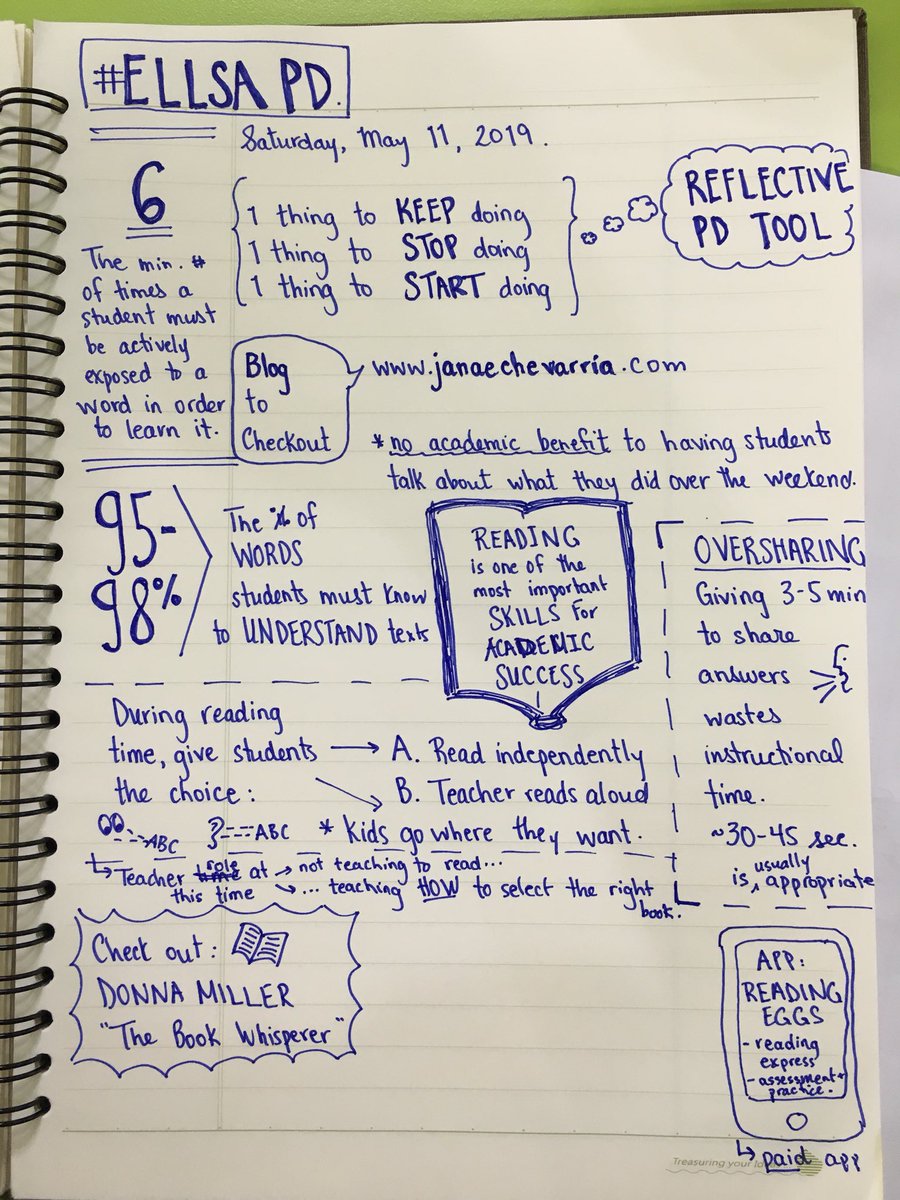 #ELLSA PD.
Saturday, May 11, 2019.
6
The min. #
of times a
student must
be actively
exposed to a
word in order
to learn it.
1 thing to KEEP doing
1 thing to STOP doing
1 thing to START doing
REFLECTIVE
PD TOOL
Blog
to
Checkout
www.janaechevarria.com
*no academic benefit to having students
talk about what they did over the weekend.
95-
98%
The % of
WORDS
students must know
to UNDERSTAND texts
READING
is one of the
most important
SKILLS for
ACADEMIC
SUCCESS
OVERSHARING
Giving 3-5 min
to share
answers
wastes
instructional
time.
~30-45 sec.
is, usually
appropriate
During reading
time, give students
the choice:
A. Read independently
B. Teacher reads aloud
ABC
?---ABC * Kids go where they want.
Teacher role at → not teaching to read...
this time ... teaching HOW to select the right
book.
Check out:
DONNA MILLER
"The Book Whisperer"
APP:
READING
EGGS
- reading
express
- assessment+
practice.
paid app